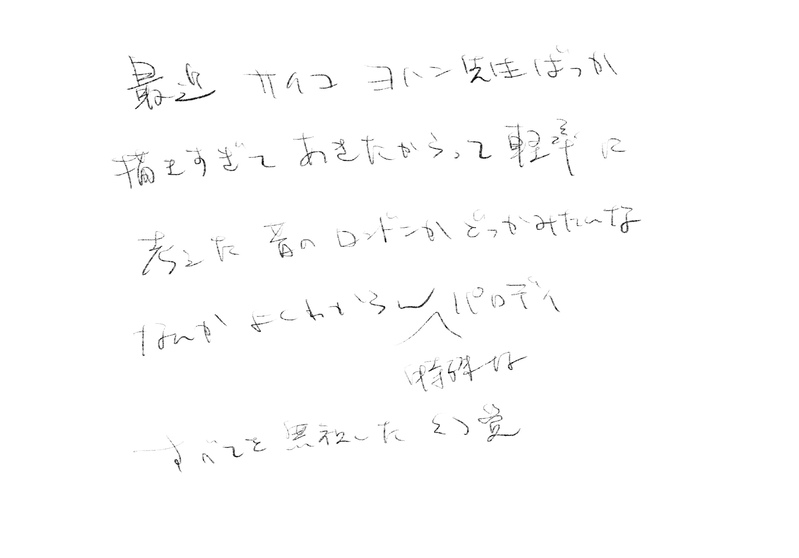 最近 サイコ ヨハン先生ばっか
描きすぎて あきたからって 軽率に
考えた 昔の ロンドンか どっかみたいな
なんか よくわからん 特殊な パロディ
すべてを 無視した 幻覚